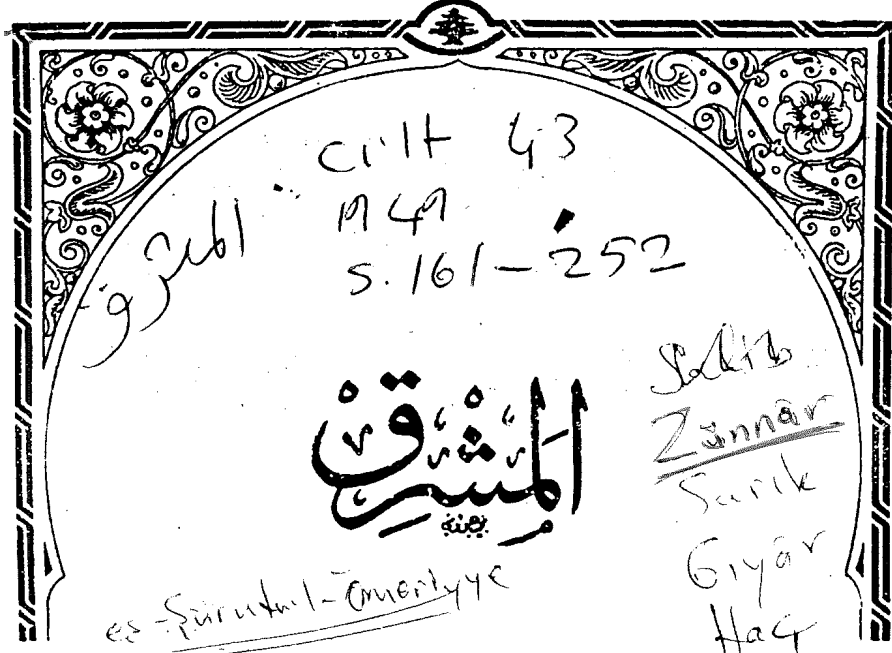 Cilt 43
1949
s. 161-252
المشرق
اَلْمَشْرِقْ
Zünnar
Sarık
Gıyâr
Haç
eş-Şurutu'l-Ömeriyye